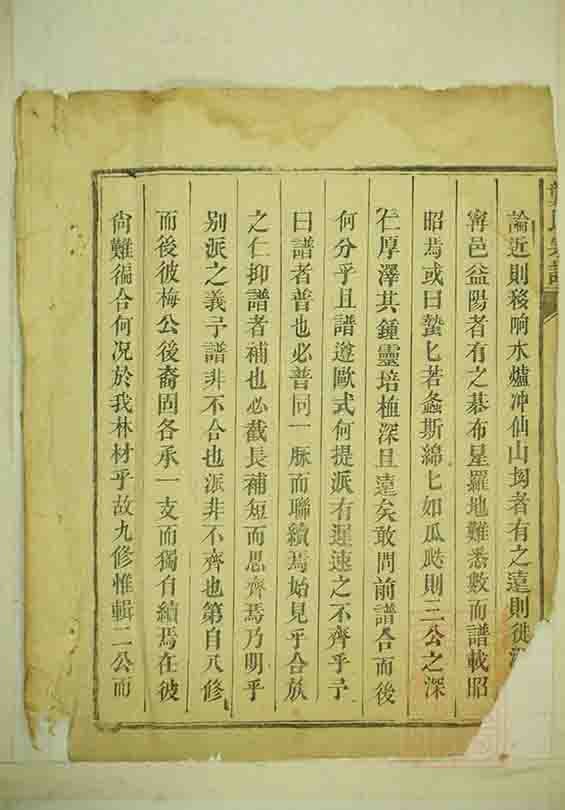 論近則移响水爐冲仙山坳者有之遠則徙
寗邑益陽者有之棊布星羅地難悉數而譜載昭
昭焉或曰蟄匕若螽斯綿匕如瓜瓞則三公之深
仁厚澤其鍾靈培植深且遠矣敢問前譜合而後
何分乎且譜遵歐式何提派有遲速之不齊乎予
曰譜者普也必普同一脈而聯續焉始見乎合族
之仁抑譜者補也必截長補短而思齊焉乃明乎
别派之義予譜非不合也派非不齊也第自八修
而後彼梅公後裔固各承一支而獨自續焉在彼
尙難徧合何况於我林材乎故九修惟輯二公而